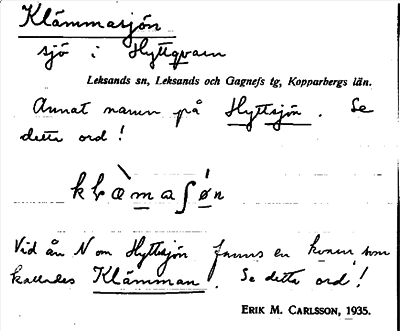 Klämmasjön
sjö i Hyttqvarn
Leksands sn, Leksands och Gagnefs tg, Kopparbergs län.
Annat namn på Hyttsjön. Se
detta ord!
Vid ån N om Hyttsjön fanns en kvarn som
kallades Klämman. Se detta ord!
ERIK M. CARLSSON, 1935.